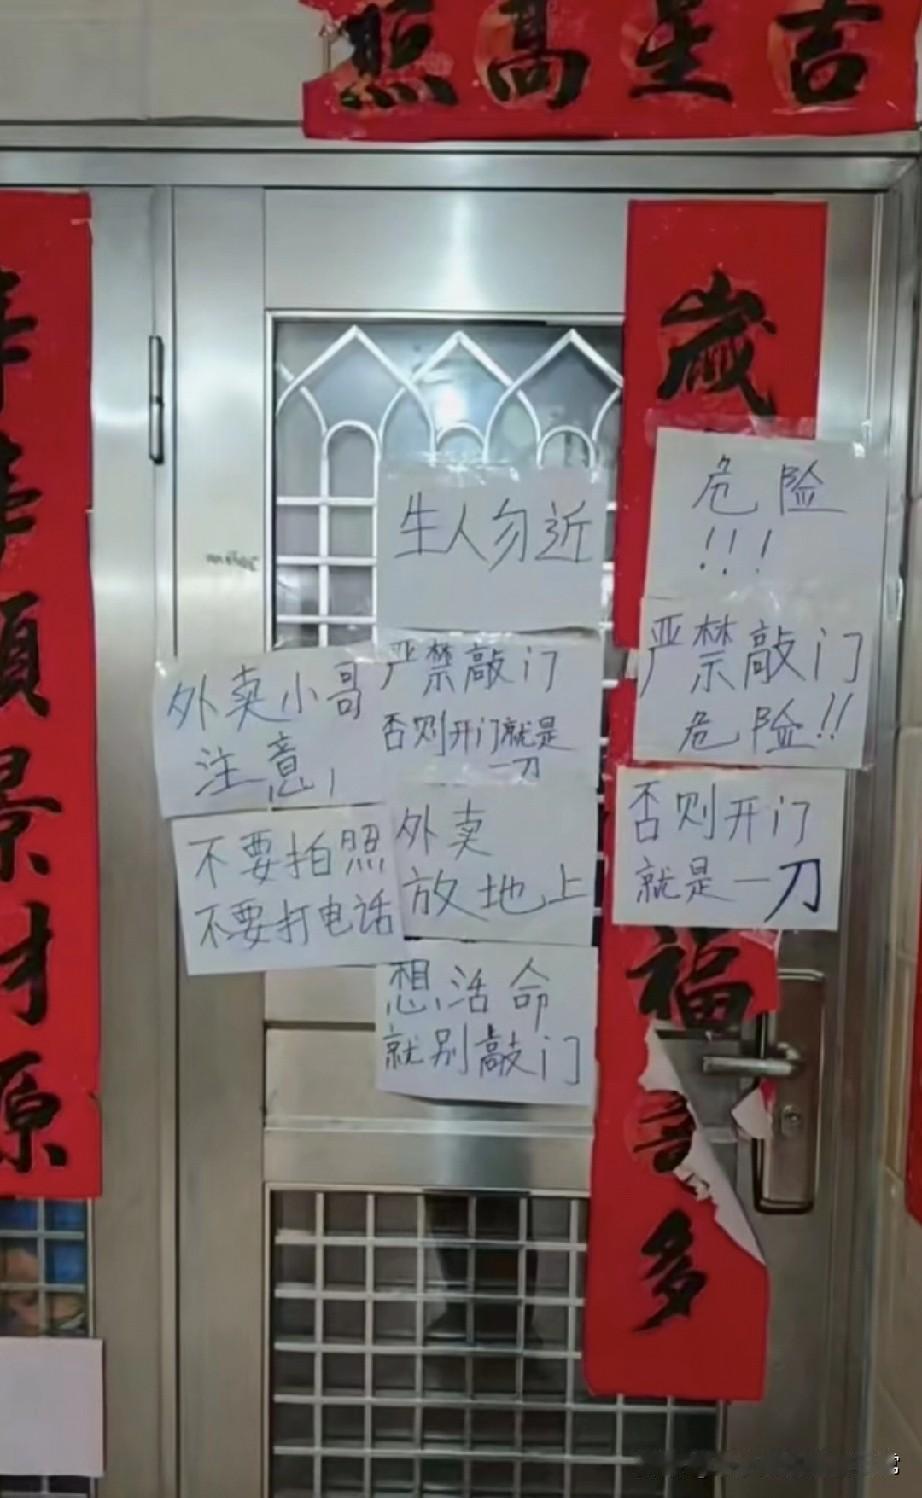 吉星高照
歲
福
多
順景財源
生人勿近
危险
!!!
严禁敲门
危险!!
否则开门
就是一刀
严禁敲门
否则开门就是
一刀
外卖小哥
注意!
不要拍照
不要打电话
外卖
放地上
想活命
就别敲门